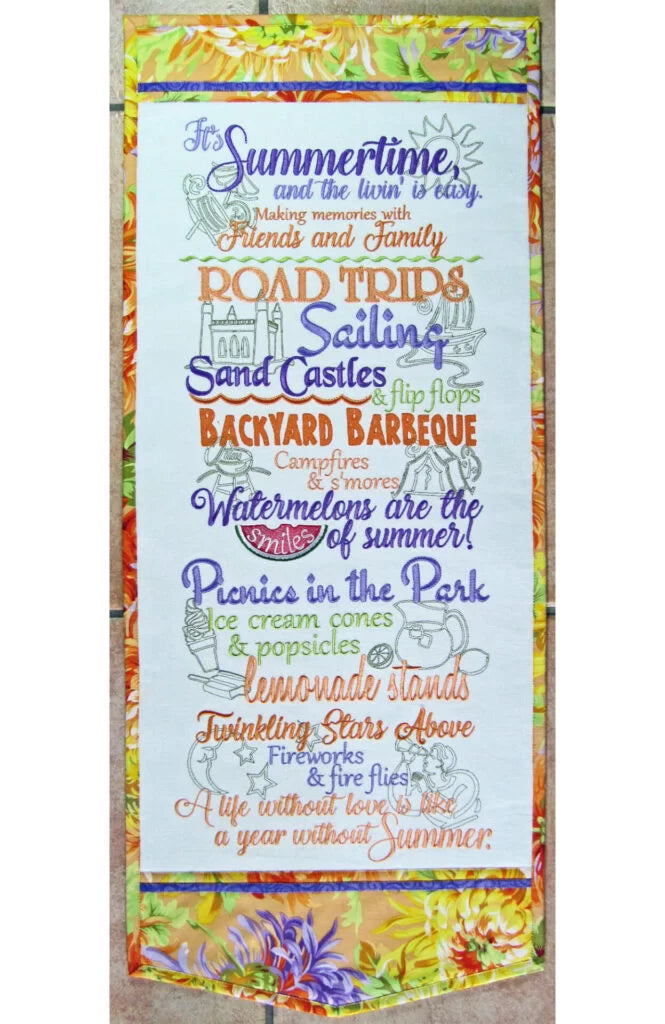 It's
Summertime,
and the livin' is easy.
Making memories with
Friends and Family
ROAD TRIPS
Sailing
Sand Castles
& flip flops
BACKYARD BARBEQUE
Campfires
& s'mores
Watermelons are the
smiles of summer!
Picnics in the Park
Ice cream cones
& popsicles
lemonade stands
Twinkling Stars Above
Fireworks
& fire flies
A life without love is like
a year without Summer.